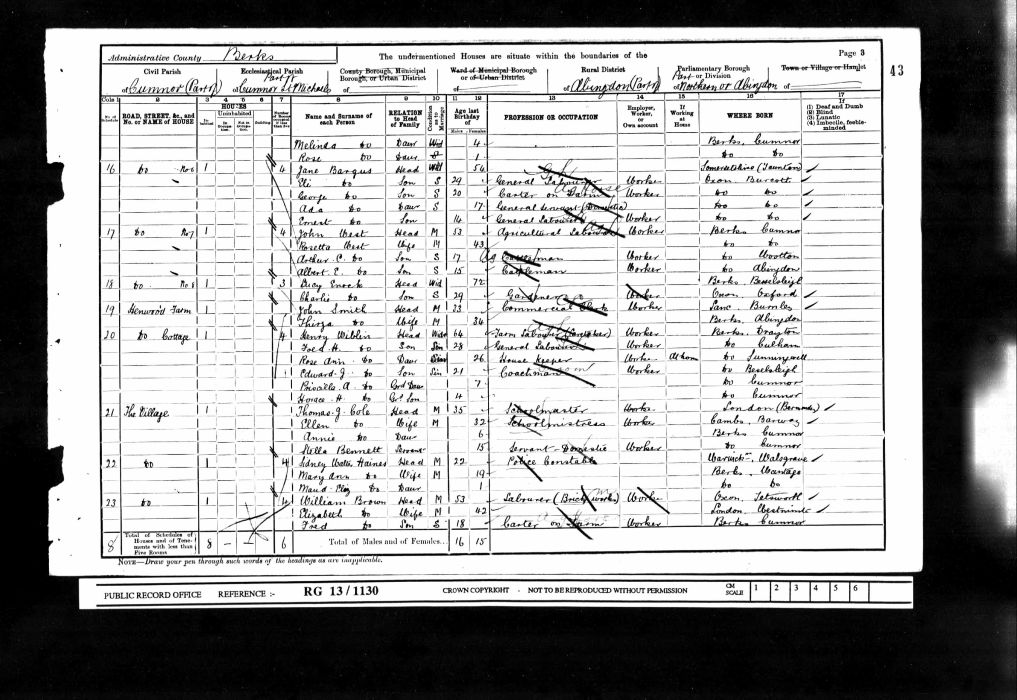 Administrative County Berks The undermentioned Houses are situate within the boundaries of the Page 3
43
Civil Parish Ecclesiastical Parish County Borough, Municipal Borough, or Urban District Ward of Municipal Borough or of Urban District Rural District Parliamentary Borough or Division Town or Village or Hamlet
of Cumnor (Part of) Part of of Cumnor St Michaels of of of Abingdon (Part of) Part of Northern or Abingdon of
Cols 1 2 3 4 5 6 7 8 9 10 11 12 13 14 15 16 17
No. of Schedule ROAD, STREET, &c., and No. or NAME of HOUSE HOUSES Inhabited Uninhabited In Occupation Not in Occupation Building Number of Rooms occupied if less than five Name and Surname of each Person RELATION to Head of Family Condition as to Marriage Age last Birthday of Males Females PROFESSION OR OCCUPATION Employer, Worker, or Own account If Working at Home WHERE BORN If (1) Deaf and Dumb (2) Blind (3) Lunatic (4) Imbecile, feeble-minded
Melinda Do Daur 4 Berks. Cumnor
Rose Do Daur S 1 Do Do
16 Do No 6 1 4 Jane Bargus Head Wid 54 Somersetshire (Taunton)
Eli Do Son S 29 General Labourer Worker Oxon. Burcott
George Do Son S 20 Carter on Farm Worker Do Do
Ada Do Daur S 17 General Servant (Domestic) Do Do
Ernest Do Son 14 General Labourer Worker Do Do
17 Do No 7 1 4 John West Head M 53 Agricultural Labourer Worker Berks Cumnor
Rosetta West Wife M 43 Do Do
Arthur C. Do Son S 17 Worker Do Wootton
Albert E. Do Son S 15 Cattleman Worker Do Abingdon
18 Do No 8 1 3 Lucy Enock Head Wid 72 Berks. Besselsleigh
Charlie Do Son S 29 Gardener Worker Oxon. Oxford
19 Henwood Farm 1 John Smith Head M 33 Commercial Clerk Worker Lanc. Burnley
Thirza Do Wife M 34 Berks. Abingdon
20 Do Cottage 1 4 Henry Wiblin Head 64 Farm Labourer Worker Berks. Drayton
Fred H. Do Son Sin 28 General Labourer Worker Do Culham
Rose Ann Do Daur 26 House Keeper Worker At home Do Sunningwell
Edward J. Do Son Sin 21 Coachman Worker Do Besselsleigh
Priscilla A. Do Grd Daur 7 Do Cumnor
Horace H. Do Gr. Son 4 Do Cumnor
21 The Village 1 Thomas J. Cole Head M 35 Schoolmaster Worker London
Ellen Do Wife M 32 Schoolmistress Worker Cambs. Barway
Annie Do Daur 6 Berks Cumnor
Stella Bennett Servant 15 Servant - Domestic Worker Do Cumnor
22 Do 1 4 Sidney Walter Haines Head M 22 Police Constable Warwick. Walsgrave
Mary Ann Do Wife M 19 Berks. Wantage
Maud Do Daur 1 Do Do
23 Do 1 4 William Brown Head M 53 Labourer (Brick works) Worker Oxon. Tetsworth
Elizabeth Do Wife M 42 London. Westminster
Fred Do Son S 18 Carter on Farm Worker Berks Cumnor
8 Total of Schedules of Houses and of Tenements with less than Five Rooms 8 - - 6 Total of Males and of Females... 16 15
NOTE—Draw your pen through such words of the headings as are inapplicable.
PUBLIC RECORD OFFICE REFERENCE :- RG 13/1130 CROWN COPYRIGHT - NOT TO BE REPRODUCED WITHOUT PERMISSION CM SCALE 1 2 3 4 5 6